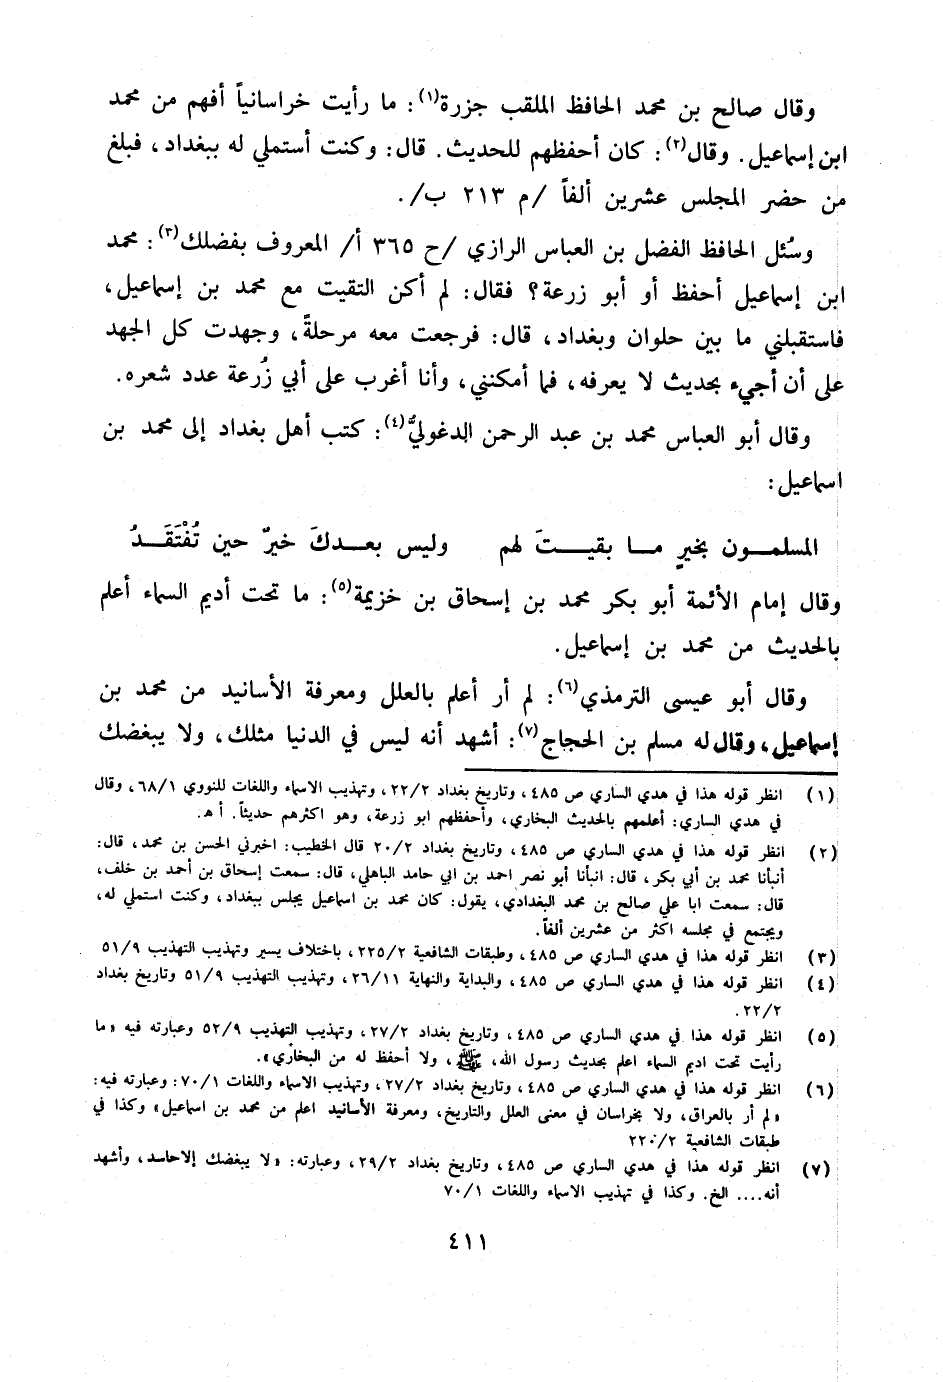 وقال صالح بن محمد الحافظ الملقب جزرة(١): ما رأيت خراسانياً أفهم من محمد
ابن إسماعيل. وقال(٢): كان أحفظهم للحديث. قال: وكنت أستملي له ببغداد، فبلغ
من حضر المجلس عشرين ألفاً /م ٢١٣ ب/.
وسُئل الحافظ الفضل بن العباس الرازي /ح ٣٦٥ أ/ المعروف بفضلك(٣): محمد
ابن إسماعيل أحفظ أو أبو زرعة؟ فقال: لم أكن التقيت مع محمد بن إسماعيل،
فاستقبلني ما بين حلوان وبغداد، قال: فرجعت معه مرحلةً، وجهدت كل الجهد
على أن أجيء بحديث لا يعرفه، فما أمكنني، وأنا أغرب على أبي زُرعة عدد شعره.
وقال أبو العباس محمد بن عبد الرحمن الدغوليُّ(٤): كتب أهل بغداد إلى محمد بن
اسماعيل:
المسلمون بخيرٍ ما بقيتَ لهم وليس بعدكَ خيرٌ حين تُفْتَقَدُ
وقال إمام الأئمة أبو بكر محمد بن إسحاق بن خزيمة(٥): ما تحت أديم السماء أعلم
بالحديث من محمد بن إسماعيل.
وقال أبو عيسى الترمذي(٦): لم أر أعلم بالعلل ومعرفة الأسانيد من محمد بن
إسماعيل، وقال له مسلم بن الحجاج(٧): أشهد أنه ليس في الدنيا مثلك، ولا يبغضك
(١) انظر قوله هذا في هدي الساري ص ٤٨٥، وتاريخ بغداد ٢٢/٢، وتهذيب الاسماء واللغات للنووي ٦٨/١، وقال
في هدي الساري: أعلمهم بالحديث البخاري، وأحفظهم ابو زرعة، وهو اكثرهم حديثاً. أ هـ.
(٢) انظر قوله هذا في هدي الساري ص ٤٨٥، وتاريخ بغداد ٢٠/٢ قال الخطيب: اخبرني الحسن بن محمد، قال:
أنبأنا محمد بن أبي بكر، قال: انبأنا أبو نصر احمد بن ابي حامد الباهلي، قال: سمعت إسحاق بن أحمد بن خلف،
قال: سمعت ابا علي صالح بن محمد البغدادي، يقول: كان محمد بن اسماعيل يجلس ببغداد، وكنت استملي له،
ويجتمع في مجلسه اكثر من عشرين ألفاً.
(٣) انظر قوله هذا في هدي الساري ص ٤٨٥، وطبقات الشافعية ٢٢٥/٢، باختلاف يسير وتهذيب التهذيب ٥١/٩
(٤) انظر قوله هذا في هدي الساري ص ٤٨٥، والبداية والنهاية ٢٦/١١، وتهذيب التهذيب ٥١/٩ وتاريخ بغداد
٢٢/٢.
(٥) انظر قوله هذا في هدي الساري ص ٤٨٥، وتاريخ بغداد ٢٧/٢، وتهذيب التهذيب ٥٢/٩ وعبارته فيه «ما
رأيت تحت اديم السماء اعلم بحديث رسول الله، ﷺ، ولا أحفظ له من البخاري».
(٦) انظر قوله هذا في هدي الساري ص ٤٨٥، وتاريخ بغداد ٢٧/٢، وتهذيب الاسماء واللغات ٧٠/١: وعبارته فيه:
«لم أر بالعراق، ولا بخراسان في معنى العلل والتاريخ، ومعرفة الأسانيد اعلم من محمد بن اسماعيل» وكذا في
طبقات الشافعية ٢٢٠/٢
(٧) انظر قوله هذا في هدي الساري ص ٤٨٥، وتاريخ بغداد ٢٩/٢، وعبارته: «لا يبغضك إلاحاسد، وأشهد
أنه.... الخ. وكذا في تهذيب الاسماء واللغات ٧٠/١
٤١١